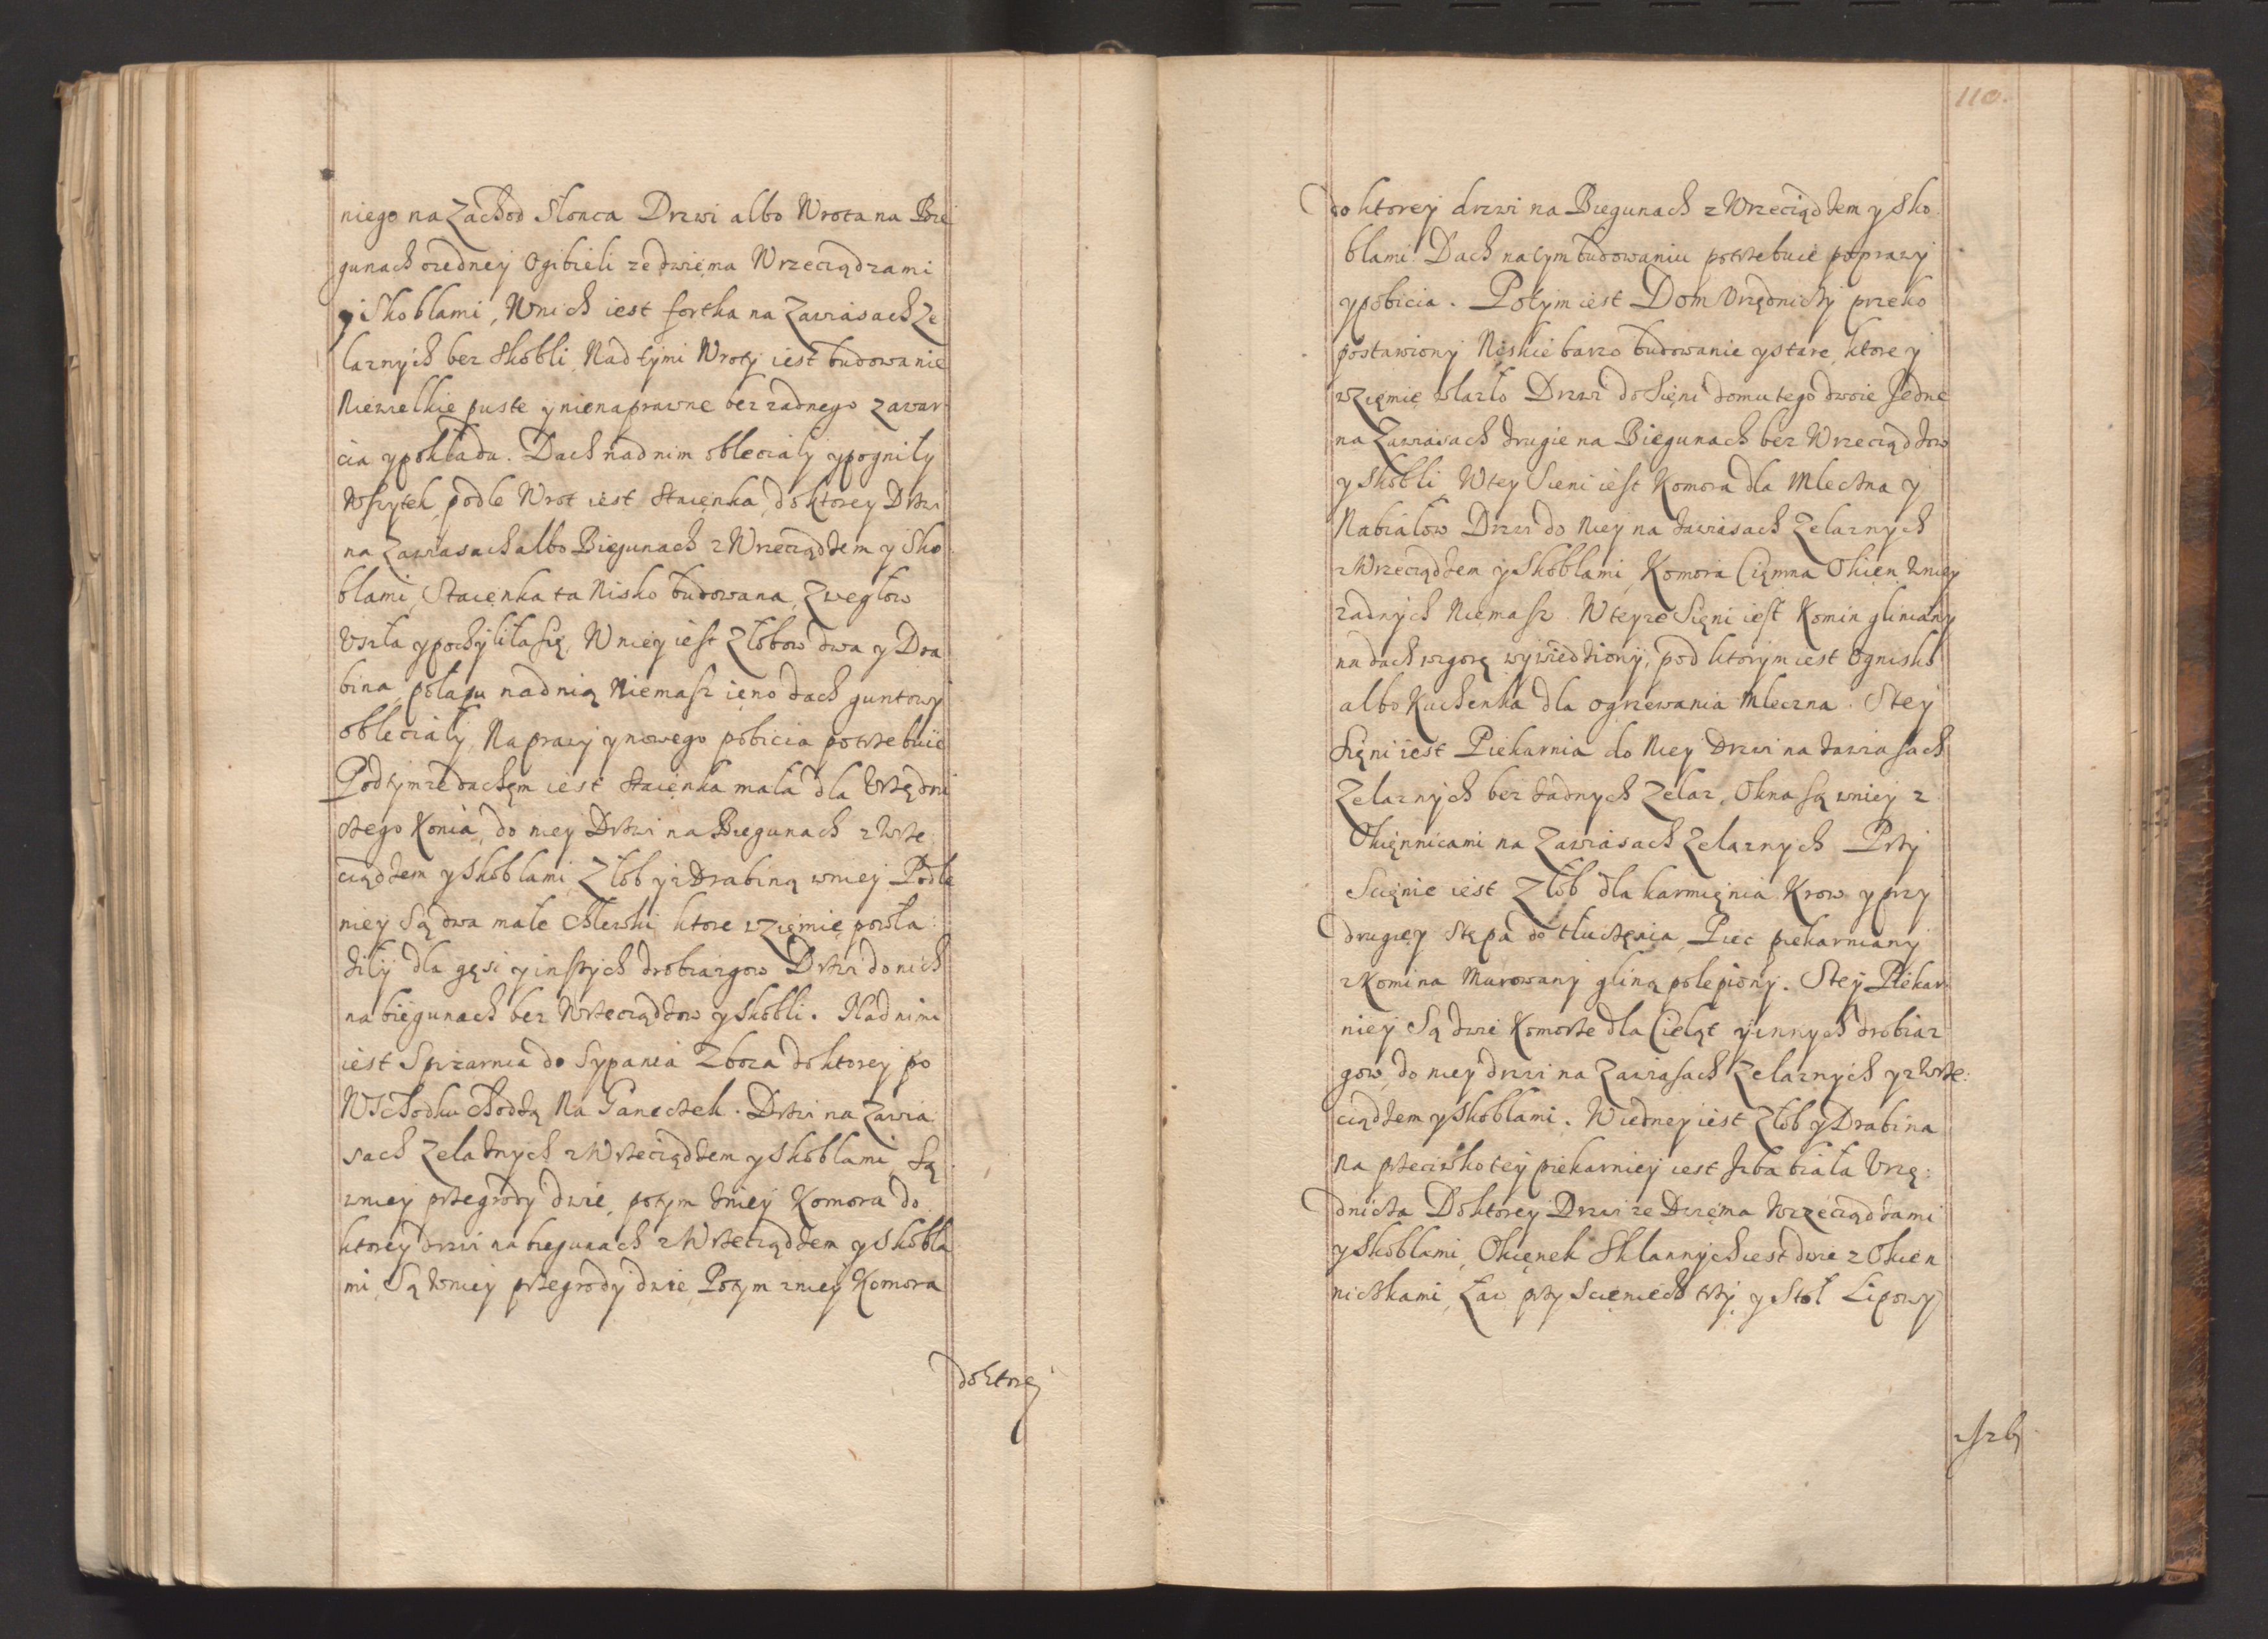 niego na Zachod Slonca Drzwi albo Wrota na Bie
gunach oiedney Ogibieli ze dwiema Wrzeciądzami
y Skoblami, Wnich iest fortka na Zawiasach Ze
laznych bez Skobli Nad tymi Wroty iest budowanie
Niewielkie puste y nienaprawne bez zadnego zawar
cia y pokładu. Dach nad nim obleciały y pogniły
Wszytek, podle Wrot iest Staienka, do ktorey Drzwi
na Zawiasach albo Biegunach z Wrzeciądzem y Sko
blami, Staienka ta Nisko budowana, Zwegłow
Uszła y pochyliła się, Wniey iest Złobow dwa y Dra
bina, połapu nad nią Niemasz ieno dach guntowy
obleciały, Naprawy y nowego pobicia potrzebuie
Podtymze dachem iest Staienka mała dla Urzędni
czego Konia, do niey Drzwi na Biegunach z Wrze
ciądzem y Skoblami Złob y z Drabiną wniey Podle
niey Są dwa małe Chlewki ktore wziemię powła
ziły dla gęsi y inszych drobiazgow Drzwi do nich
na biegunach bez Wrzeciądzow y Skobli. Nad nimi
iest Spizarnia do Sypania Zboza do ktorey po
Wschodku chodzą Na Ganeczek. Drzwi na Zawia
sach Zelaznych z Wrzeciądzem y Skoblami Są
wniey przegrody dwie, potym zniey Komora do
ktorey drzwi na biegunach z Wrzeciądzem y Skobla
mi, Są wniey przegrody dwie, Potym zniey Komora
do ktorey
110.
do ktorey drzwi na Biegunach z Wrzeciądzem y Sko
blami. Dach na tym budowaniu potrzebuie poprawy
y pobicia. Potym iest Dom Urzędniczy przeko
postawiony Niskie barzo budowanie y stare, ktore y
wziemię wlazło Drzwi do Sieni domu tego dwoie Jedne
na Zawiasach drugie na Biegunach bez Wrzeciądzow
y Skobli, Wtey Sieni iest Komora dla Mleczna y
Nabiałow Drzwi do Niey na zawiasach Zelaznych
z Wrzeciądzem y Skoblami, Komora Ciemna Okien wniey
zadnych Niemasz. Wteyze Sieni iest Komin gliniany
na dach wzgorę wywiedziony, pod ktorym iest Ognisko
albo Kuchenka dla ogrzewania Mleczna. Stey
Sieni iest Piekarnia do Niey Drzwi na zawiasach
Zelaznych bez zadnych Zelaz, Okna Są wniey z
Okiennicami na Zawiasach Zelaznych Przy
Scienie iest Złob dla karmienia Krow y przy
drugiey stępa do tłuczenia, Piec piekarniany
z Komina Murowany gliną polepiony. Stey Piekar
niey Są dwie Komorze dla Cieląt y innych drobiaz
gow, do niey drzwi na Zawiasach Zelaznych y z Wrze:
ciądzem y Skoblami. Wiedney iest Złob y Drabina
Na przeciwko tey piekarniey iest Jzba biała Urzę:
dnicza Do ktorey Drzwi ze Dwiema Wrzeciądzami
y Skoblami, Okienek Sklannych iest dwie z Okien
niczkami, Ław przy Scieniech trzy y Stoł Lipowy
z Jzby